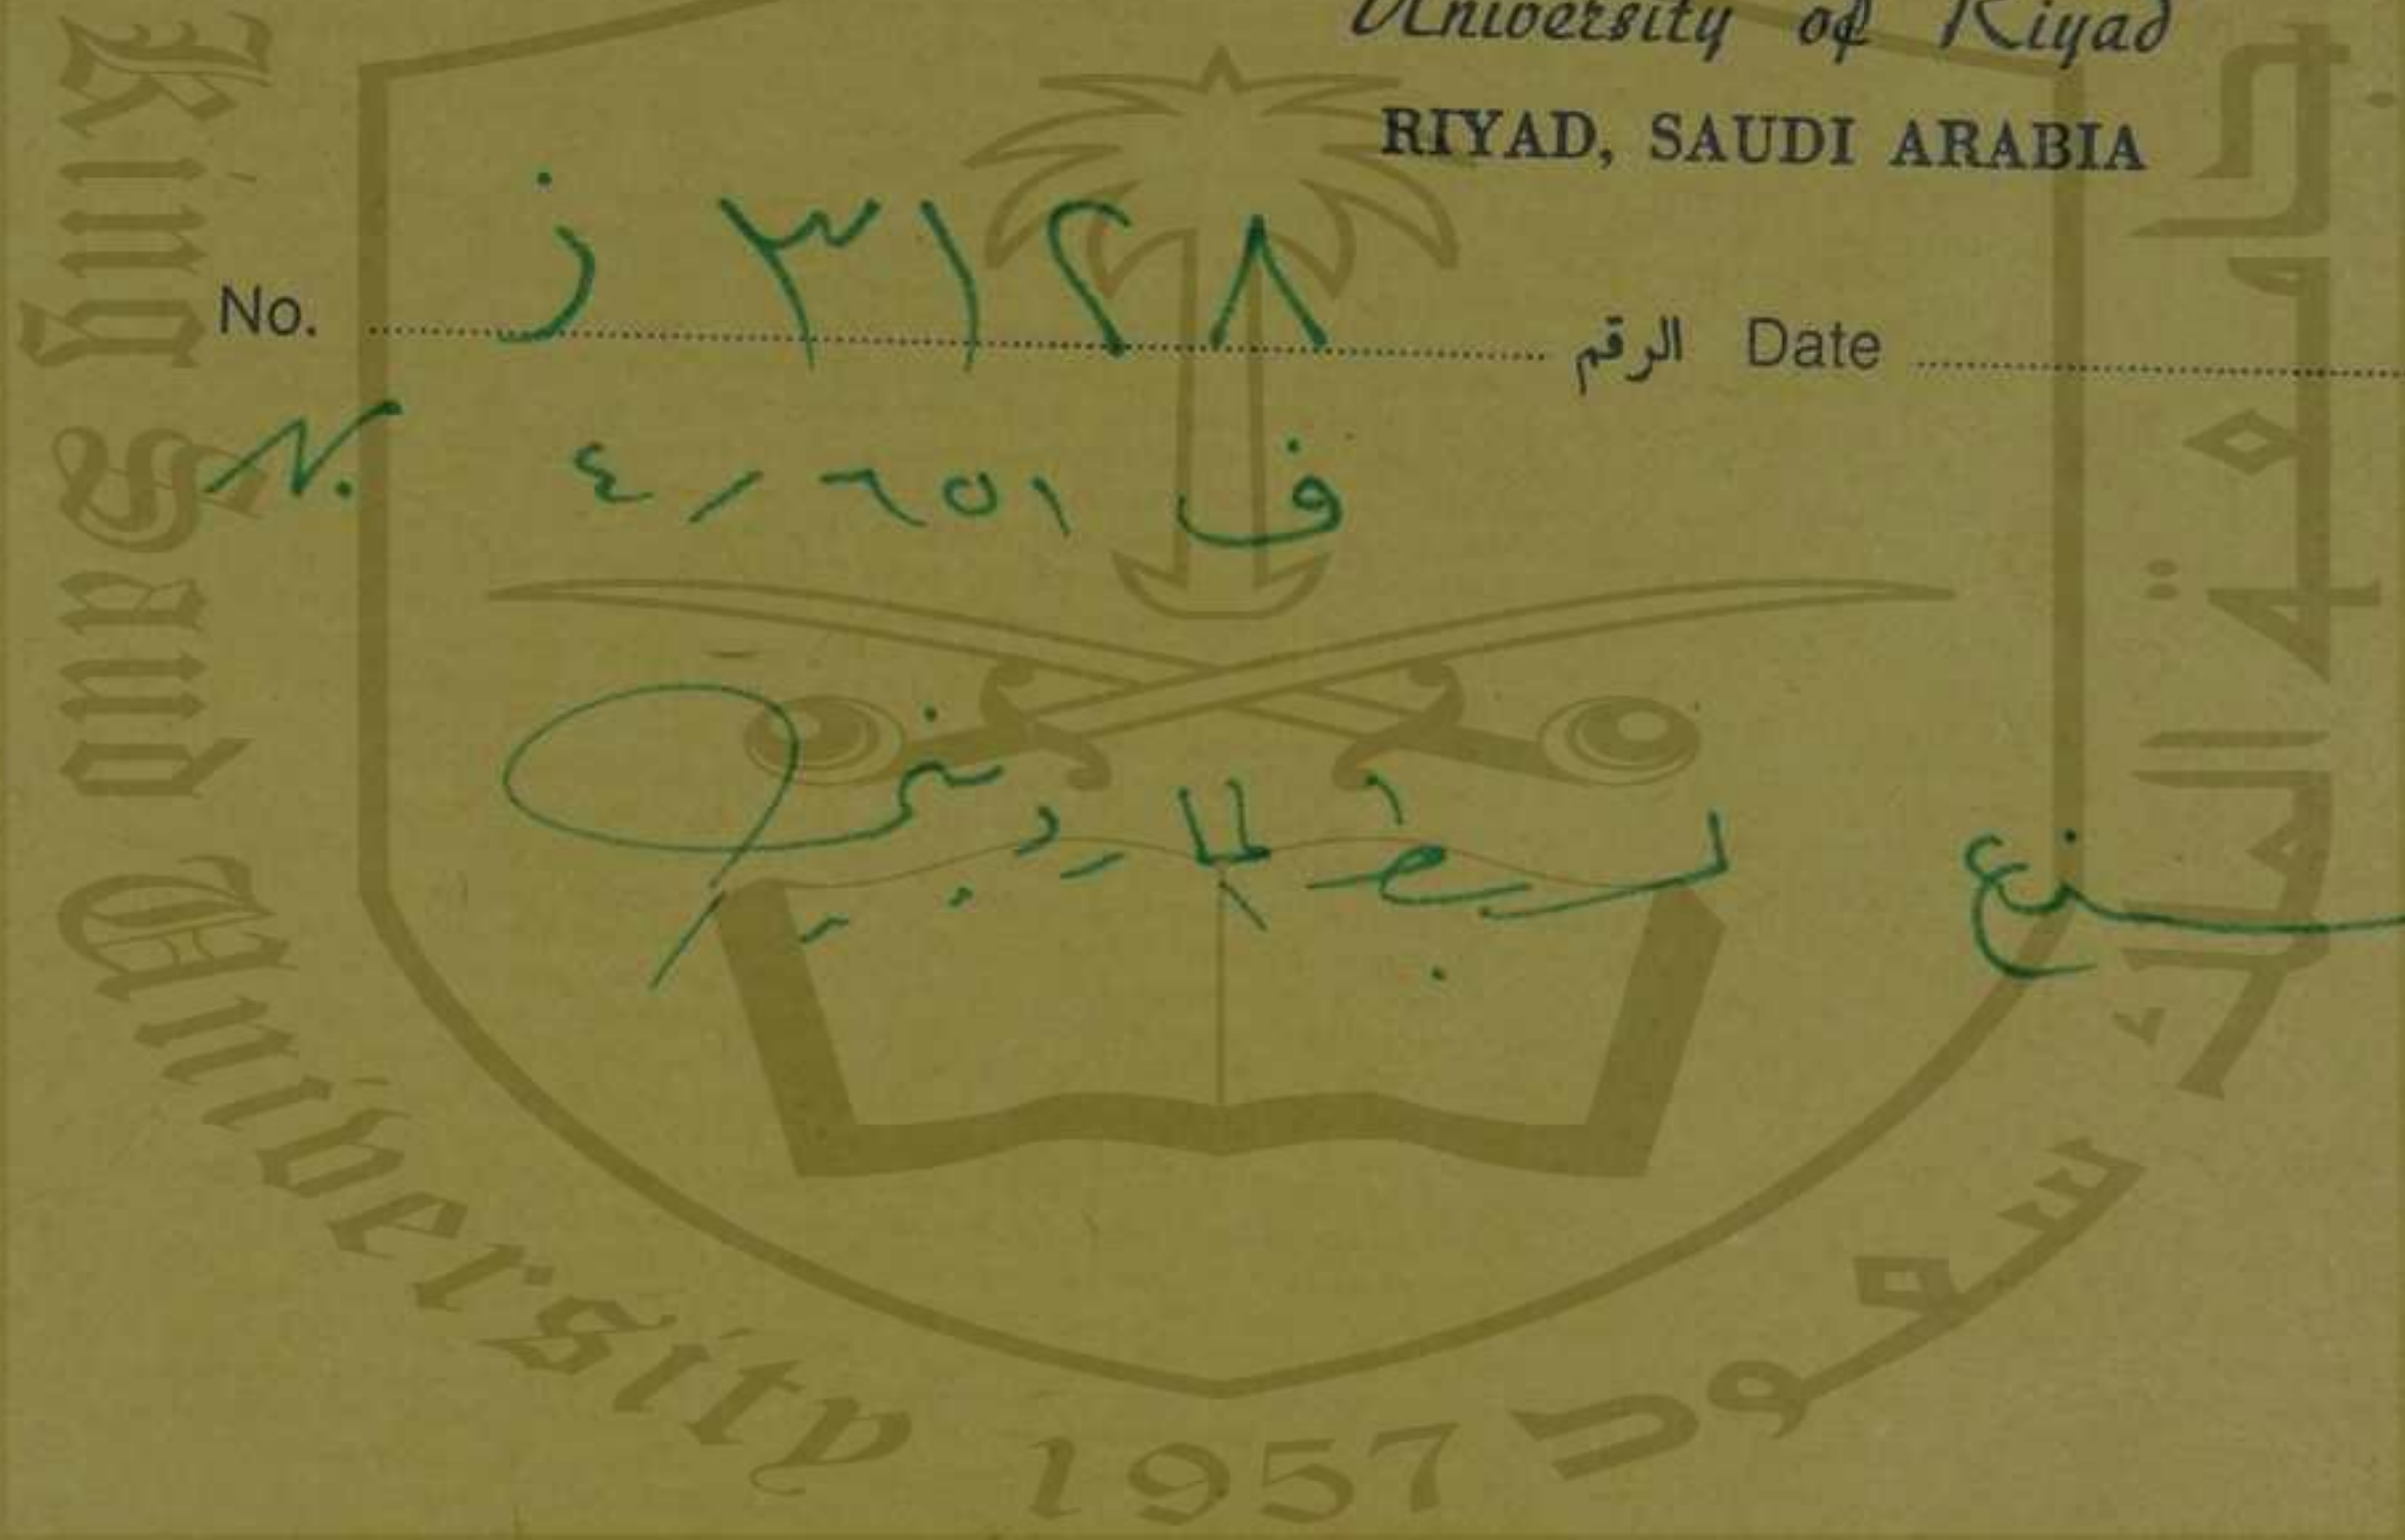 University of Riyad
RIYAD, SAUDI ARABIA
No. ٣١٢٨ ز الرقم Date
ف ٤٫٦٥١
لسبط المارديني
King Saud University 1957